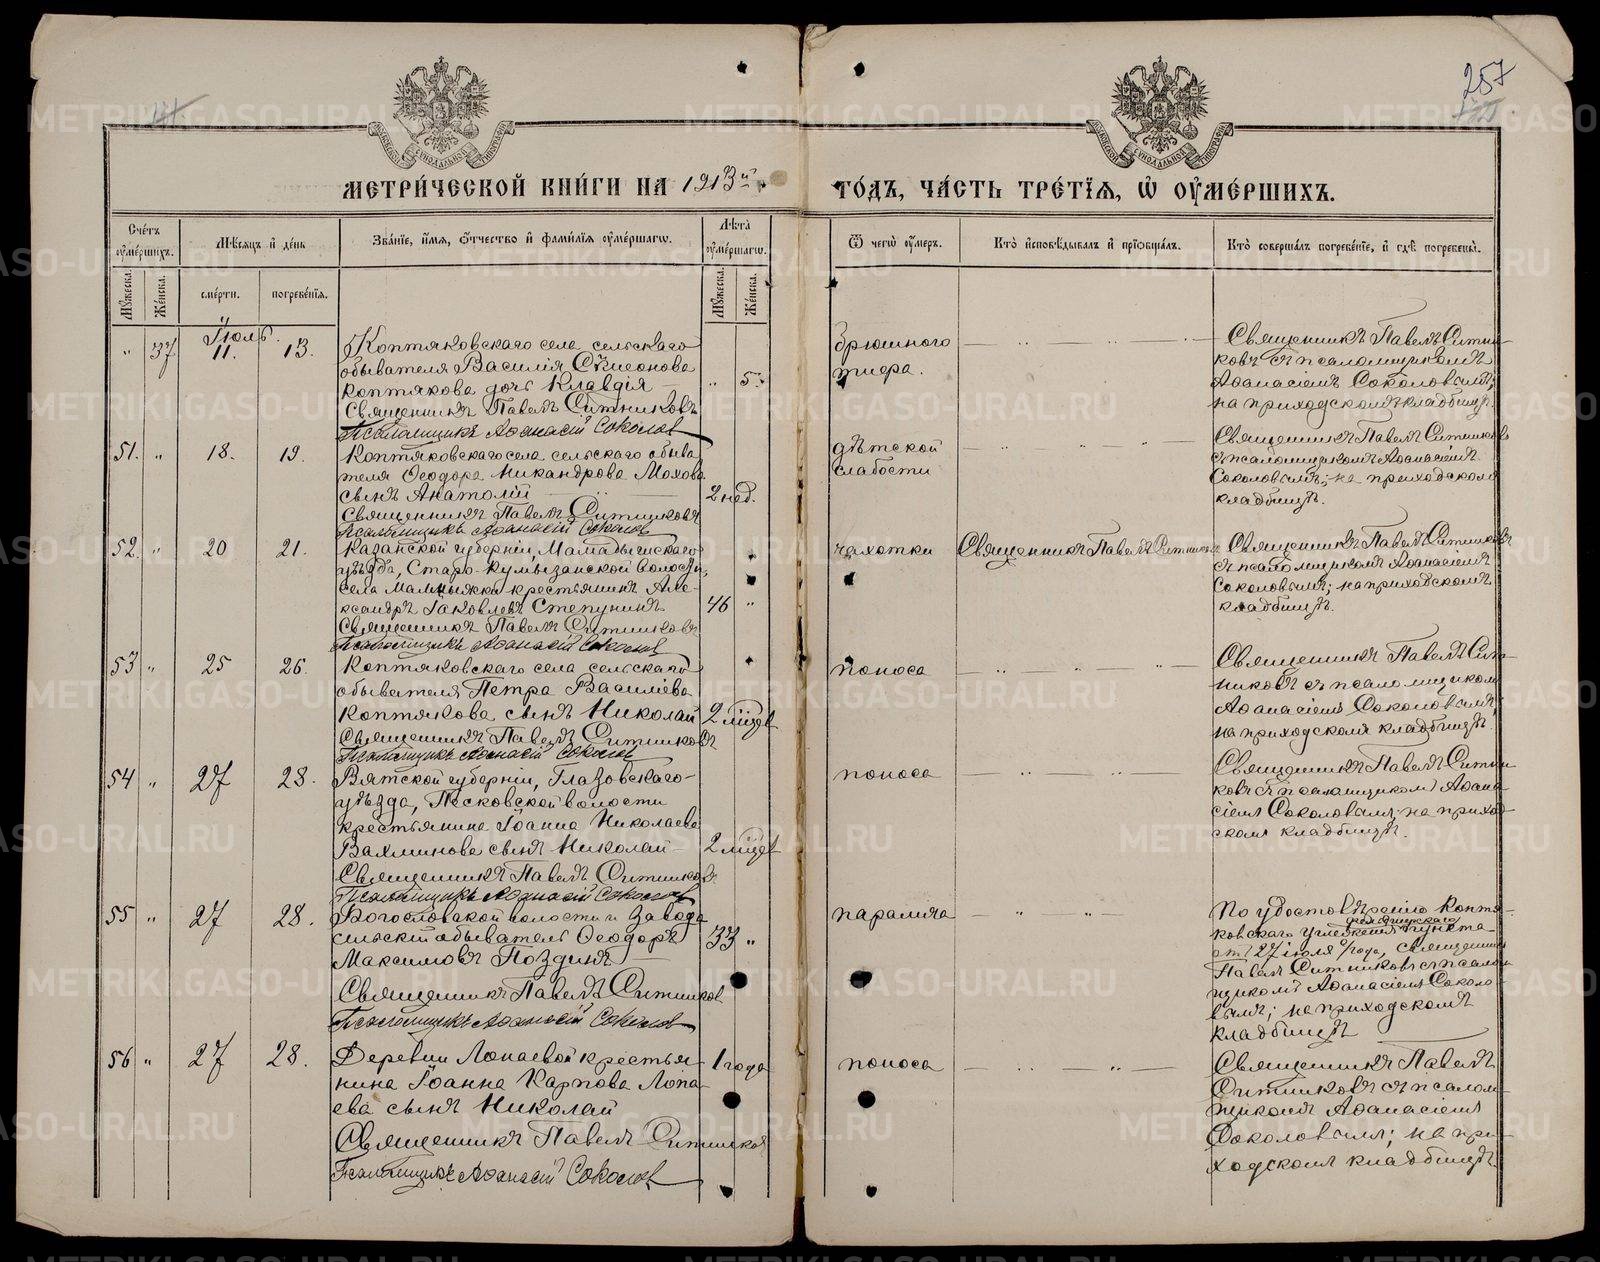 257
МЕТРИ́ЧЕСКОЙ КНИ́ГИ НА 1913й
ГО́ДЪ, ЧА́СТЬ ТРЕ́ТЇЯ, Ѿ ОУМЕ́РШИХЪ.
Сче́тъ оуме́ршихъ.
Мѣ́сяцъ и де́нь
Зва́нїе, и́мя, о́тчество и фами́лїя оуме́ршагѡ.
Лѣта̀ оуме́ршагѡ.
Ѿ чегѡ̀ оу́меръ.
Кто̀ исповѣ́дывалъ и прїобща́лъ.
Кто̀ соверша́лъ погребе́нїе, и гдѣ̀ погребены̀.
Мужеска. Же́нска.
сме́рти. погребе́нїя.
Мужеска. Же́нска.
Іюль.
" 37 11. 13.
Коптяковскаго села сельскаго
обывателя Василія Симеонова
Коптякова дочь Клавдія
Священникъ Павелъ Ситниковъ
Псаломщикъ Аѳанасій Соколовъ
" 5.
брюшного
тифа.
Священникъ Павелъ Ситни-
ковъ съ псаломщикомъ
Аѳанасіемъ Соколовымъ;
на приходскомъ кладбищѣ.
51. " 18. 19.
Коптяковскаго села сельскаго обыва-
теля Ѳеодора Никандрова Мохова
сынъ Анатолій
Священникъ Павелъ Ситниковъ
Псаломщикъ Аѳанасій Соколовъ
2 нед.
дѣтской
слабости
Священникъ Павелъ Ситниковъ
съ псаломщикомъ Аѳанасіемъ
Соколовымъ; на приходскомъ
кладбищѣ.
52. " 20 21.
Казанской губерніи, Мамадышскаго
уѣзда, Старо-Кумызанской волости,
села Мамыжки крестьянинъ Але-
ксандръ Іаковлевъ Степунинъ
Священникъ Павелъ Ситниковъ
Псаломщикъ Аѳанасій Соколовъ
46 "
чахотки
Священникъ Павелъ Ситниковъ
Священникъ Павелъ Ситниковъ
съ псаломщикомъ Аѳанасіемъ
Соколовымъ; на приходскомъ
кладбищѣ.
53 " 25 26.
Коптяковскаго села сельскаго
обывателя Петра Василіева
Коптякова сынъ Николай
Священникъ Павелъ Ситниковъ
Псаломщикъ Аѳанасій Соколовъ
2 мѣсяц
поноса
Священникъ Павелъ Сит-
никовъ съ псаломщикомъ
Аѳанасіемъ Соколовымъ;
на приходскомъ кладбищѣ.
54 " 27 28.
Вятской губерніи, Глазовскаго
уѣзда, Песковской волости
крестьянина Іоанна Николаева
Вахминова сынъ Николай
Священникъ Павелъ Ситниковъ
Псаломщикъ Аѳанасій Соколовъ
2 мѣсяц
поноса
Священникъ Павелъ Ситни-
ковъ съ псаломщикомъ Аѳана-
сіемъ Соколовымъ; на приход-
скомъ кладбищѣ.
55 " 27 28.
Богословской волости и завода
сельскій обыватель Ѳеодоръ
Максимовъ Поздинъ
Священникъ Павелъ Ситниковъ
Псаломщикъ Аѳанасій Соколовъ
33 "
паралича
По удостовѣренію Коптя-
ковскаго фельдшерскаго пункта
отъ 27 іюля с/года, священникъ
Павелъ Ситниковъ съ псалом-
щикомъ Аѳанасіемъ Соколо-
вымъ; на приходскомъ
кладбищѣ
56 " 27 28.
Деревни Лопаевой крестья-
нина Іоанна Карпова Лопа-
ева сынъ Николай
Священникъ Павелъ Ситниковъ
Псаломщикъ Аѳанасій Соколовъ
1 года
поноса
Священникъ Павелъ
Ситниковъ съ псалом-
щикомъ Аѳанасіемъ
Соколовымъ; на при-
ходскомъ кладбищѣ.
METRIKI.GASO-URAL.RU